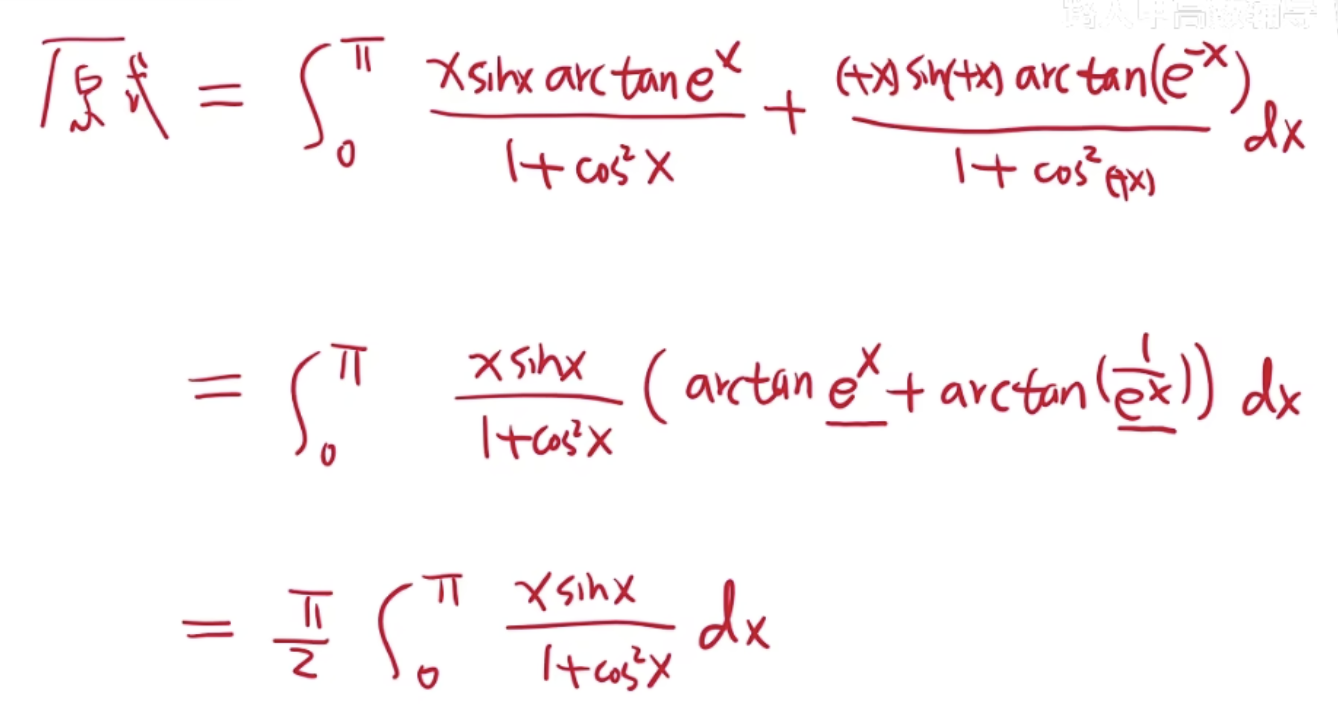 路人甲高数辅导
原式 = ∫₀^π (x sinx arctan e^x)/(1+cos²x) + ((-x) sin(-x) arctan(e^-x))/(1+cos²(-x)) dx
= ∫₀^π (x sinx)/(1+cos²x) (arctan e^x + arctan(1/e^x)) dx
= π/2 ∫₀^π (x sinx)/(1+cos²x) dx